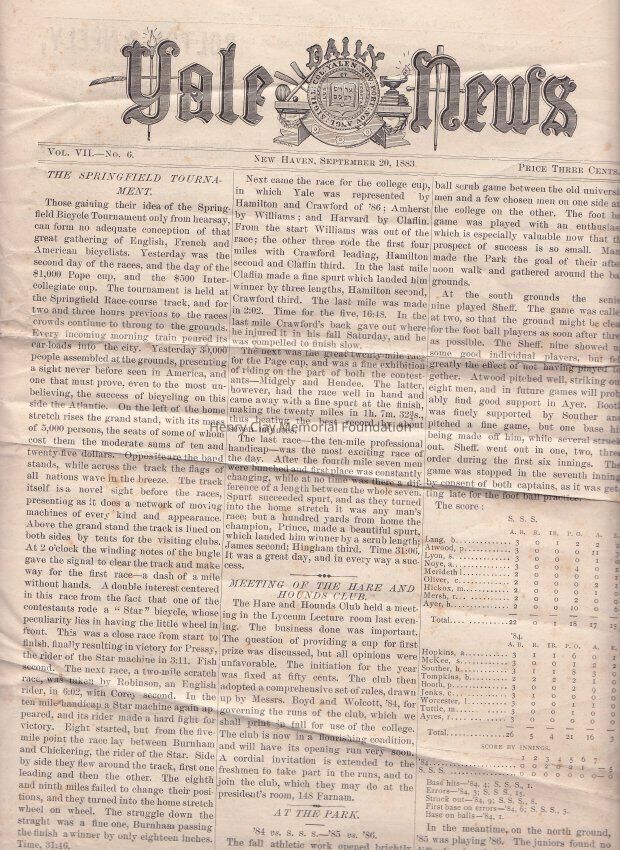 Yale DAILY News
Vol. VII.—No. 6.
New Haven, September 20, 1883.
Price Three Cents.
THE SPRINGFIELD TOURNA-
MENT.
Those gaining their idea of the Spring-
field Bicycle Tournament only from hearsay,
can form no adequate conception of that
great gathering of English, French and
American bicyclists. Yesterday was the
second day of the races, and the day of the
$1,000 Pope cup, and the $500 Inter-
collegiate cup. The tournament is held at
the Springfield Race-course track, and for
two and three hours previous to the races
crowds continue to throng to the grounds.
Every incoming morning train poured its
car-loads into the city. Yesterday 30,000
people assembled at the grounds, presenting
a sight never before seen in America, and
one that must prove, even to the most un-
believing, the success of bicycling on this
side the Atlantic. On the left of the home
stretch rises the grand stand, with its mass
of 5,000 persons, the seats of some of whom
cost them the moderate sums of ten and
twenty-five dollars. Opposite are the band
stands, while across the track the flags of
all nations wave in the breeze. The track
itself is a novel sight before the races,
presenting as it does a network of moving
machines of every kind and appearance.
Above the grand stand the track is lined on
both sides by tents for the visiting clubs.
At 2 o'clock the winding notes of the bugle
gave the signal to clear the track and make
way for the first race—a dash of a mile
without hands. A double interest centered
in this race from the fact that one of the
contestants rode a "Star" bicycle, whose
peculiarity lies in having the little wheel in
front. This was a close race from start to
finish, finally resulting in victory for Pressy,
the rider of the Star machine in 3:11. Fish
second. The next race, a two-mile scratch
race, was taken by Robinson, an English
rider, in 6:02, with Corey second. In the
ten mile handicap a Star machine again ap-
peared, and its rider made a hard fight for
victory. Eight started, but from the five-
mile point the race lay between Burnham
and Chickering, the rider of the Star. Side
by side they flew around the track, first one
leading and then the other. The eighth
and ninth miles failed to change their posi-
tions, and they turned into the home stretch
wheel on wheel. The struggle down the
straight was a fine one, Burnham passing
the finish a winner by only eighteen inches.
Time, 31:46.
Next came the race for the college cup,
in which Yale was represented by
Hamilton and Crawford of '86; Amherst
by Williams; and Harvard by Claflin.
From the start Williams was out of the
race; the other three rode the first four
miles with Crawford leading, Hamilton
second and Claflin third. In the last mile
Claflin made a fine spurt which landed him
winner by three lengths, Hamilton second,
Crawford third. The last mile was made
in 2:02. Time for the five, 16:48. In the
last mile Crawford's back gave out where
he injured it in his fall Saturday, and he
was compelled to finish slow.
The next was the great twenty-mile race
for the Page cup, and was a fine exhibition
of riding on the part of both the contest-
ants—Midgely and Hendee. The latter,
however, had the race well in hand and
came away with a fine spurt at the finish,
making the twenty miles in 1h. 7m. 32⅖s.,
thus beating the best record by about
Henry Clay Memorial Foundation
The last race—the ten-mile professional
handicap—was the most exciting race of
the day. After the fourth mile seven men
were bunched and first place was constantly
changing, while at no time was there a dif-
ference of a length between the whole seven.
Spurt succeeded spurt, and as they turned
into the home stretch it was any man's
race; but a hundred yards from home the
champion, Prince, made a beautiful spurt,
which landed him winner by a scrub length;
James second; Hingham third. Time 31:06.
It was a great day, and in every way a suc-
cess.
MEETING OF THE HARE AND
HOUNDS CLUB.
The Hare and Hounds Club held a meet-
ing in the Lyceum Lecture room last even-
ing. The business done was important.
The question of providing a cup for first
prize was discussed, but all opinions were
unfavorable. The initiation for the year
was fixed at fifty cents. The club then
adopted a comprehensive set of rules, drawn
up by Messrs. Boyd and Wolcott, '84, for
governing the runs of the club, which we
shall print in full for use of the college.
The club is now in a flourishing condition,
and will have its opening run very soon.
A cordial invitation is extended to the
freshmen to take part in the runs, and to
join the club, which they may do at the
president's room, 148 Farnam.
AT THE PARK.
'84 vs. S. S. S.—'85 vs. '86.
The fall athletic work opened brightly
ball scrub game between the old universi
men and a few chosen men on one side a
the college on the other. The foot b
game was played with an enthusias
which is especially valuable now that t
prospect of success is so small. Man
made the Park the goal of their afte
noon walk and gathered around the ba
grounds.
At the south grounds the senio
nine played Sheff. The game was calle
at two, so that the ground might be clea
for the foot ball players as soon after thre
as possible. The Sheff. nine showed u
some good individual players, but fe
greatly the effect of not having played to
gether. Atwood pitched well, striking ou
eight men, and in future games will prob
ably find good support in Ayer. Booth
was finely supported by Souther and
pitched a fine game, but one base hit
being made off him, while several struck
out. Sheff. went in one, two, three
order during the first six innings. The
game was stopped in the seventh inning
by consent of both captains, as it was get-
ting late for the foot ball practice.
The score:
S. S. S.
A.B. R. 1B. P.O. A. E.
Lang, b.
Atwood, p.
Lyon, s.
Noye, a.
Merideth
Oliver, c.
Hickox, m.
Mersh, r.
Ayer, h.
Total 22 0 1 18 17 15
'84.
A.B. R. 1B. P.O. A. E.
Hopkins, a.
McKee, s.
Souther, h.
Tompkins, b.
Booth, p.
Jenks, c.
Worcester, l.
Tuttle, m.
Ayres, r.
Total 26 5 4 21 16
SCORE BY INNINGS.
1 2 3 4 5 6 7
'84
S. S. S.
Base hits—'84, 4; S. S. S., 1.
Errors—'84, 3; S. S. S., 15.
Struck out—'84, 9; S. S. S.,
First base on errors—'84, 6; S. S. S., 5.
Base on balls—'84, 1.
In the meantime, on the north ground,
'85 was playing '86. The juniors found no